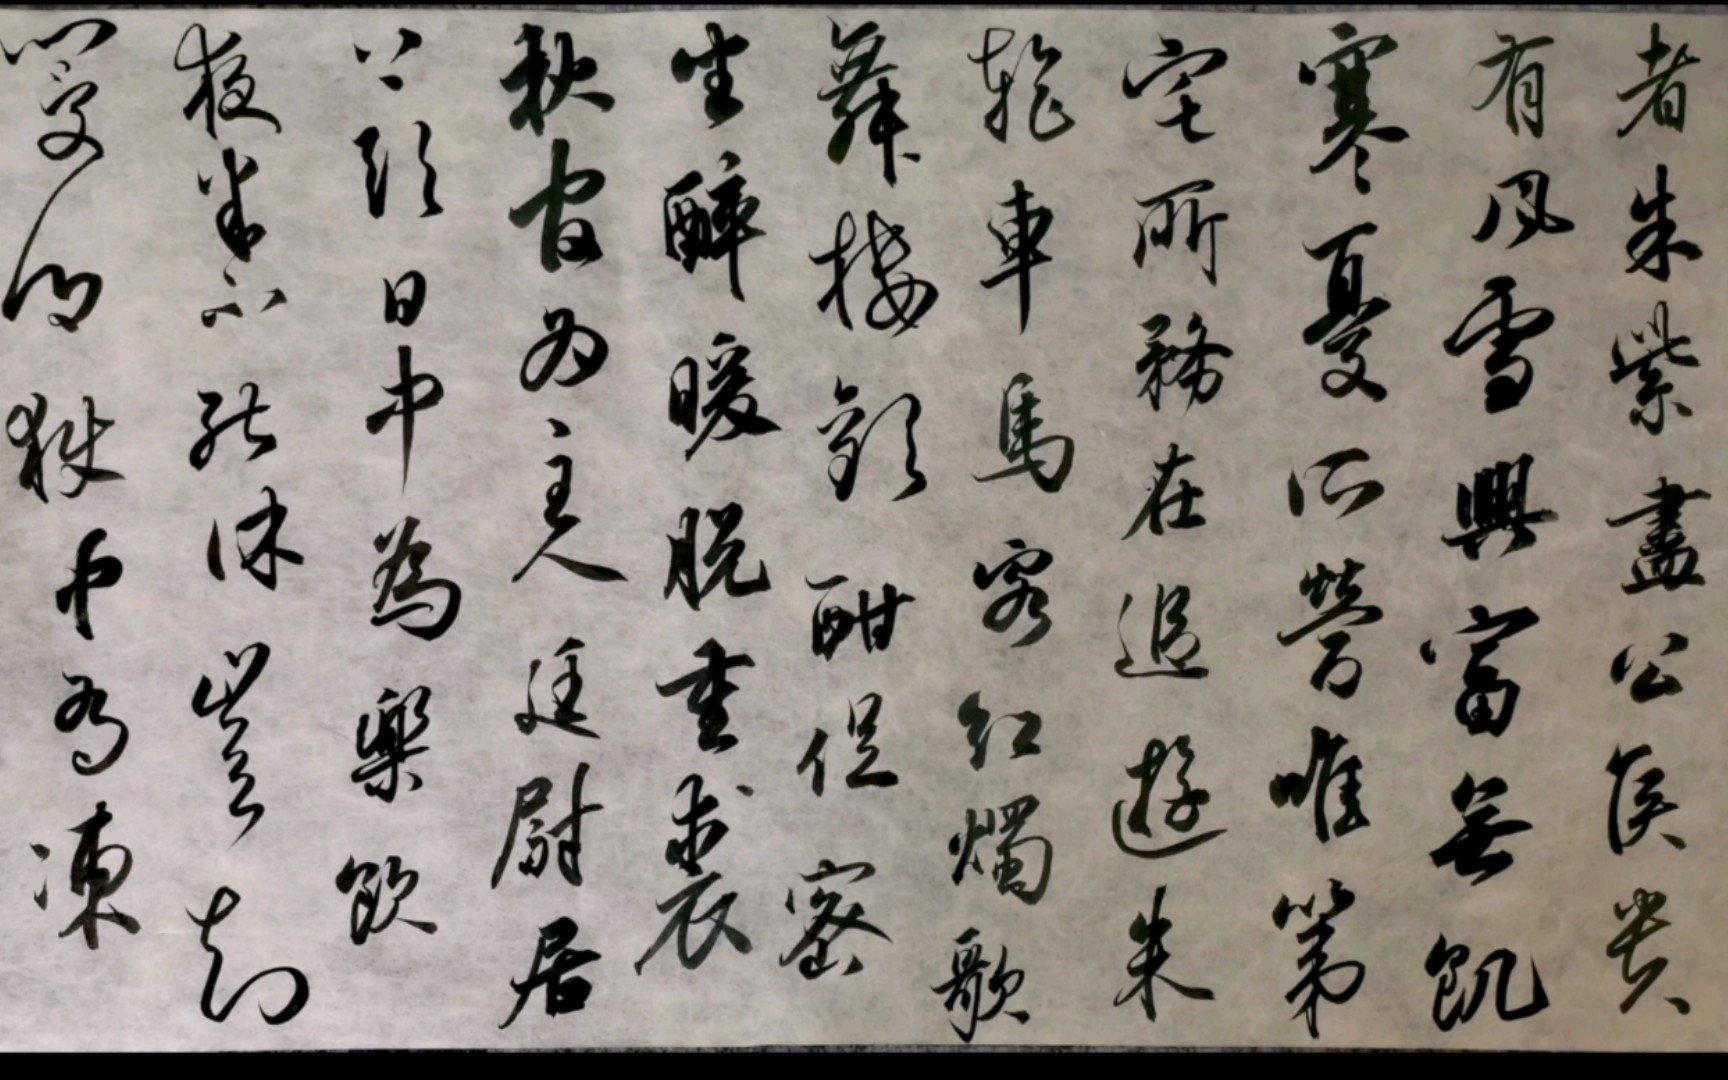 者朱紫盡公侯貴
有風雪興富無飢
寒憂所營唯第
宅所務在追遊朱
輪車馬客紅燭歌
舞樓歡酣促密
坐醉暖脫重裘
秋官為主人廷尉居
上頭日中為樂飲
夜半不能休豈知
閿鄉獄中有凍